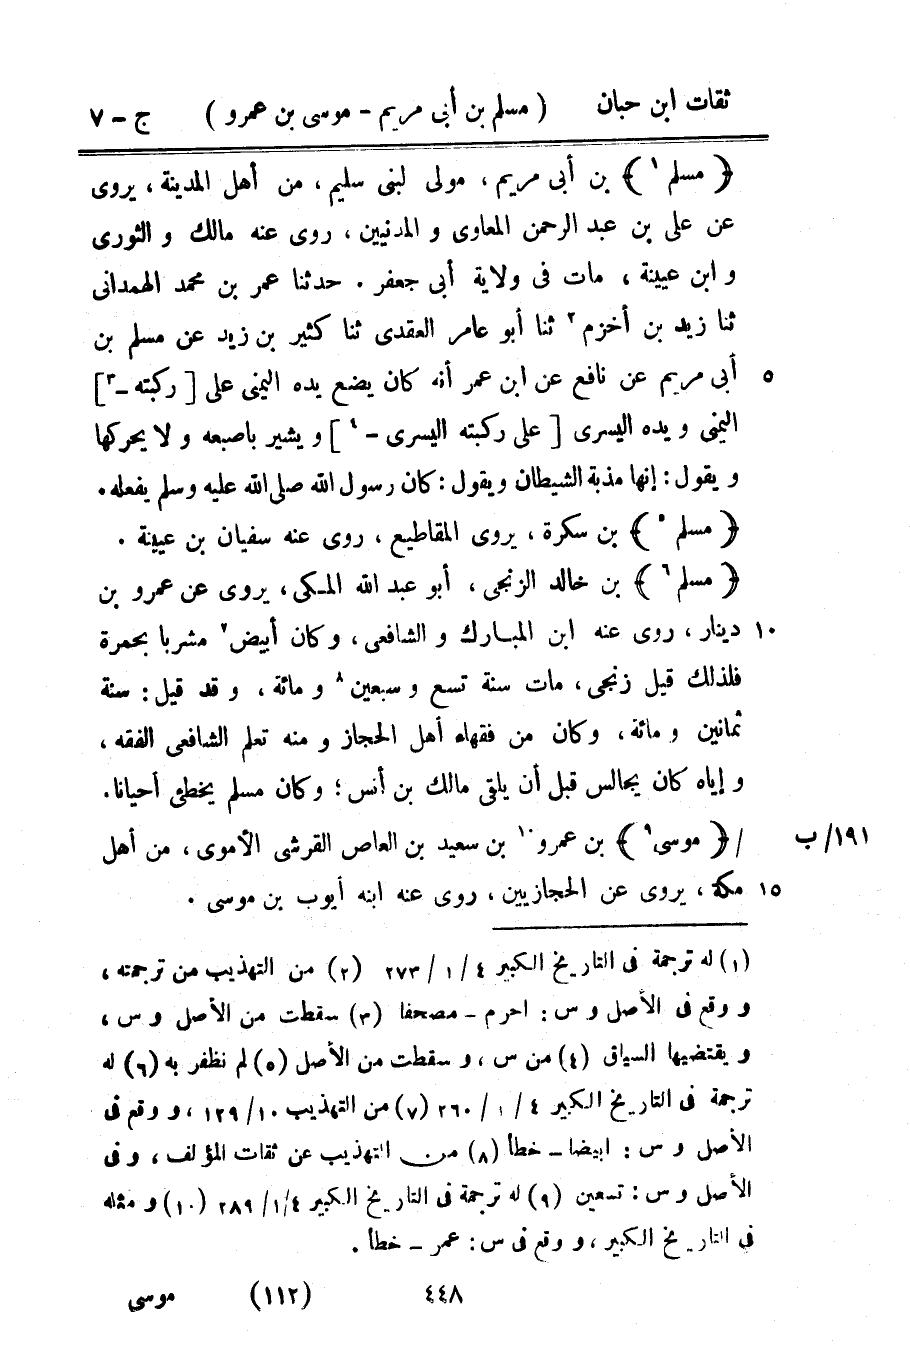 ثقات ابن حبان ( مسلم بن أبى مريم - موسى بن عمرو ) ج - ٧
﴿ مسلم ١ ﴾ بن أبى مريم ، مولى لبنى سليم ، من أهل المدينة ، يروى
عن على بن عبد الرحمن المعاوى و المدنيين ، روى عنه مالك و الثورى
و ابن عيينة ، مات فى ولاية أبى جعفر . حدثنا عمر بن محمد الهمدانى
ثنا زيد بن أخزم ٢ ثنا أبو عامر العقدى ثنا كثير بن زيد عن مسلم بن
٥ أبى مريم عن نافع عن ابن عمر أنه كان يضع يده اليمنى على [ ركبته - ٣ ]
اليمنى و يده اليسرى [ على ركبته اليسرى - ٤ ] و يشير باصبعه و لا يحركها
و يقول : إنها مذبة الشيطان ويقول : كان رسول الله صلى الله عليه وسلم يفعله .
﴿ مسلم ٥ ﴾ بن سكرة ، يروى المقاطيع ، روى عنه سفيان بن عيينة .
﴿ مسلم ٦ ﴾ بن خالد الزنجى ، أبو عبد الله المكى ، يروى عن عمرو بن
١٠ دينار ، روى عنه ابن المبارك و الشافعى ، وكان أبيض ٧ مشربا بحمرة
فلذلك قيل زنجى ، مات سنة تسع و سبعين ٨ و مائة ، و قد قيل : سنة
ثمانين و مائة ، وكان من فقهاء أهل الحجاز و منه تعلم الشافعى الفقه ،
و إياه كان يجالس قبل أن يلقى مالك بن أنس ؛ وكان مسلم يخطئ أحيانا .
١٩١/ب / ﴿ موسى ٩ ﴾ بن عمرو ١٠ بن سعيد بن العاص القرشى الأموى ، من أهل
١٥ مكة ، يروى عن الحجازيين ، روى عنه ابنه أيوب بن موسى .
(١) له ترجمة فى التاريخ الكبير ٤ / ١ / ٢٧٣ (٢) من التهذيب من ترجمته ،
و وقع فى الأصل و س : احرم - مصحفا (٣) سقطت من الأصل و س ،
و يقتضيها السياق (٤) من س ، و سقطت من الأصل (٥) لم نظفر به (٦) له
ترجمة فى التاريخ الكبير ٤ / ١ / ٢٦٠ (٧) من التهذيب ١٠ / ١٢٩ ، و وقع فى
الأصل و س : ايضا - خطأ (٨) من التهذيب عن ثقات المؤلف ، و فى
الأصل و س : تسعين (٩) له ترجمة فى التاريخ الكبير ٤ / ١ / ٢٨٩ (١٠) و مثله
فى التاريخ الكبير ، و وقع فى س : عمر - خطأ .
٤٤٨ (١١٢) موسى